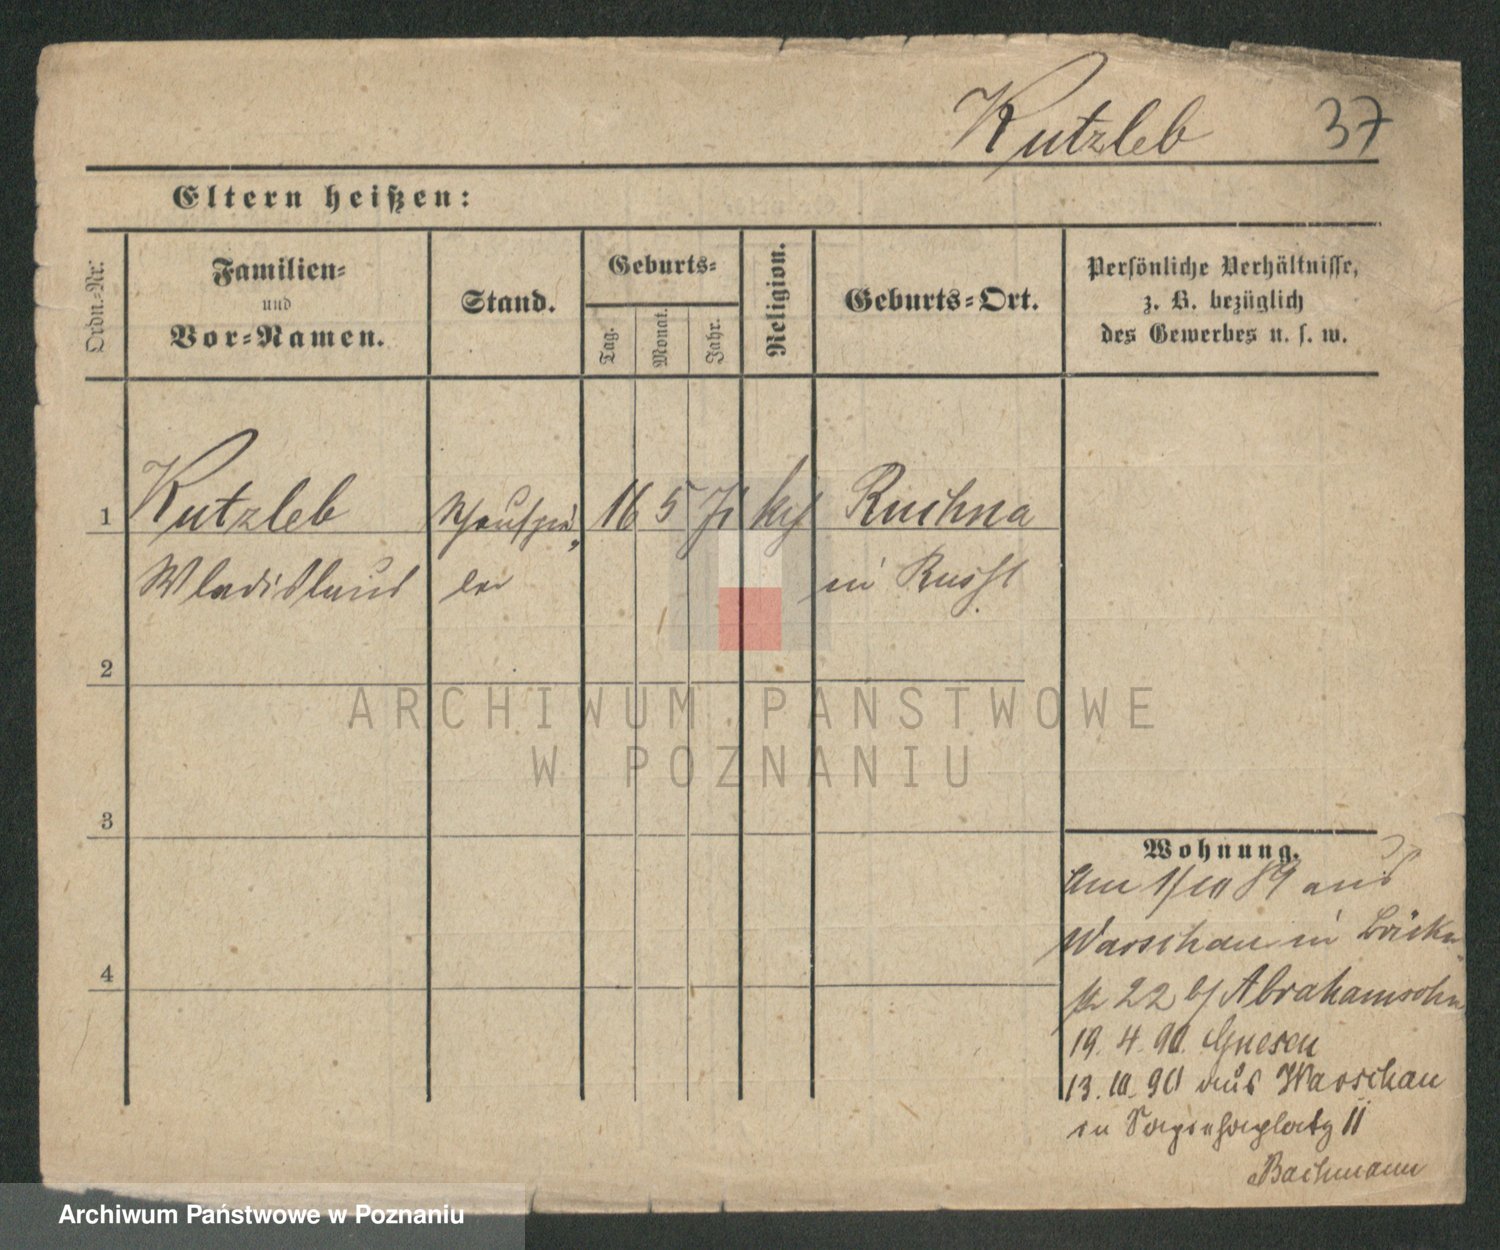 Kutzleb 37
Eltern heißen:
Ordn.-Nr.
Familien-
und
Vor-Namen.
Stand.
Geburts-
Tag.
Monat.
Jahr.
Religion.
Geburts-Ort.
Persönliche Verhältnisse,
z. B. bezüglich
des Gewerbes u. s. w.
1 Kutzleb Schauspie- 16 5 kth Ruchna
Wladislaus ler in Russl
2
3
4
Wohnung.
Am 1/10 89 aus
Warschau in Bäcker-
str 22 b/ Abrahamsohn
19. 4. 90. Gnesen
13. 10. 90 aus Warschau
in Sapiehaplatz 11
Bachmann
ARCHIWUM PAŃSTWOWE
W POZNANIU
Archiwum Państwowe w Poznaniu